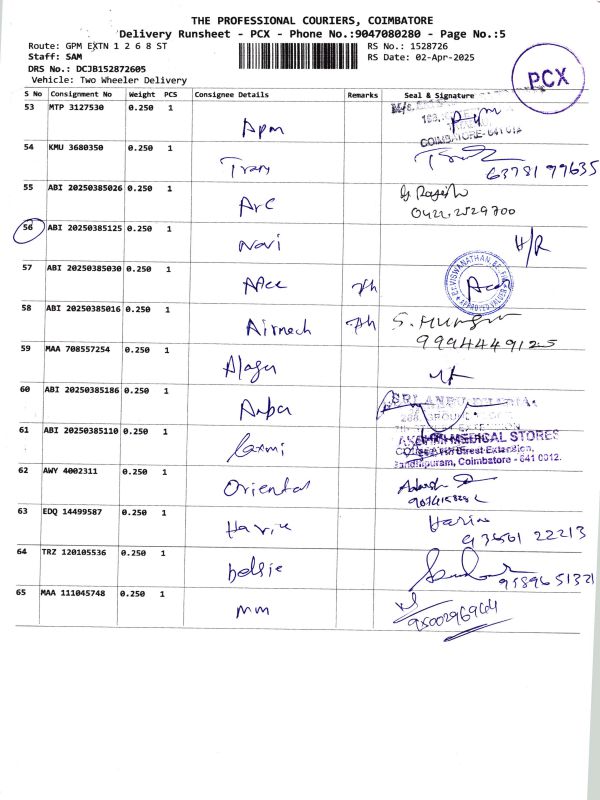 THE PROFESSIONAL COURIERS, COIMBATORE
Delivery Runsheet - PCX - Phone No.:9047080280 - Page No.:5
Route: GPM EXTN 1 2 6 8 ST RS No.: 1528726
Staff: SAM RS Date: 02-Apr-2025
DRS No.: DCJB152872605
Vehicle: Two Wheeler Delivery
PCX
S No Consignment No Weight PCS Consignee Details Remarks Seal & Signature
53 MTP 3127530 0.250 1 Apm
COIMBATORE- 641 012
54 KMU 3680350 0.250 1
6378199635
55 ABI 20250385026 0.250 1 Arc
0422,2529700
56 ABI 20250385125 0.250 1 Navi H/R
57 ABI 20250385030 0.250 1 Ph
VISWANATHAN APPROVED VALUER
58 ABI 20250385016 0.250 1 Airmech Ph
9994449125
59 MAA 708557254 0.250 1
60 ABI 20250385186 0.250 1
61 ABI 20250385110 0.250 1 Laxmi MEDICAL STORES
Street Extension,
Gandhipuram, Coimbatore - 641 0012.
62 AWY 4002311 0.250 1 Oriental
63 EDQ 14499587 0.250 1
64 TRZ 120105536 0.250 1
9589651321
65 MAA 111045748 0.250 1 mm
9500296964